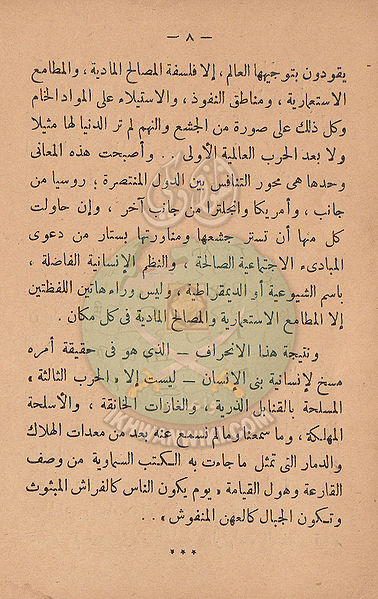 — ٨ —
يقودون بتوجيهها العالم ، إلا فلسفة المصالح المادية ، والمطامع
الاستعمارية ، ومناطق النفوذ ، والاستيلاء على المواد الخام
وكل ذلك على صورة من الجشع والنهم لم تر الدنيا لها مثيلا
ولا بعد الحرب العالمية الأولى . . وأصبحت هذه المعانى
وحدها هى محور التنافس بين الدول المنتصرة ؛ روسيا من
جانب ، وأمريكا وانجلترا من جانب آخر ، وإن حاولت
كل منها أن تستر جشعها ومناورتها بستار من دعوى
المبادىء الاجتماعية الصالحة ، والنظم الإنسانية الفاضلة ،
باسم الشيوعية أو الديمقراطية ، وليس وراء هاتين اللفظتين
إلا المطامع الاستعمارية والمصالح المادية فى كل مكان .
ونتيجة هذا الانحراف — الذى هو فى حقيقة أمره
مسخ لإنسانية بنى الانسان — ليست إلا « الحرب الثالثة »
المسلحة بالقنابل الذرية ، والغازات الخانقة ، والأسلحة
المهلكة ، وما سمعنا وما لم نسمع عنه بعد من معدات الهلاك
والدمار التى تمثل ما جاءت به الكتب السماوية من وصف
القارعة وهول القيامة « يوم يكون الناس كالفراش المبثوث
وتكون الجبال كالعهن المنفوش » . .
* * *
IKHWANWIKI.COM